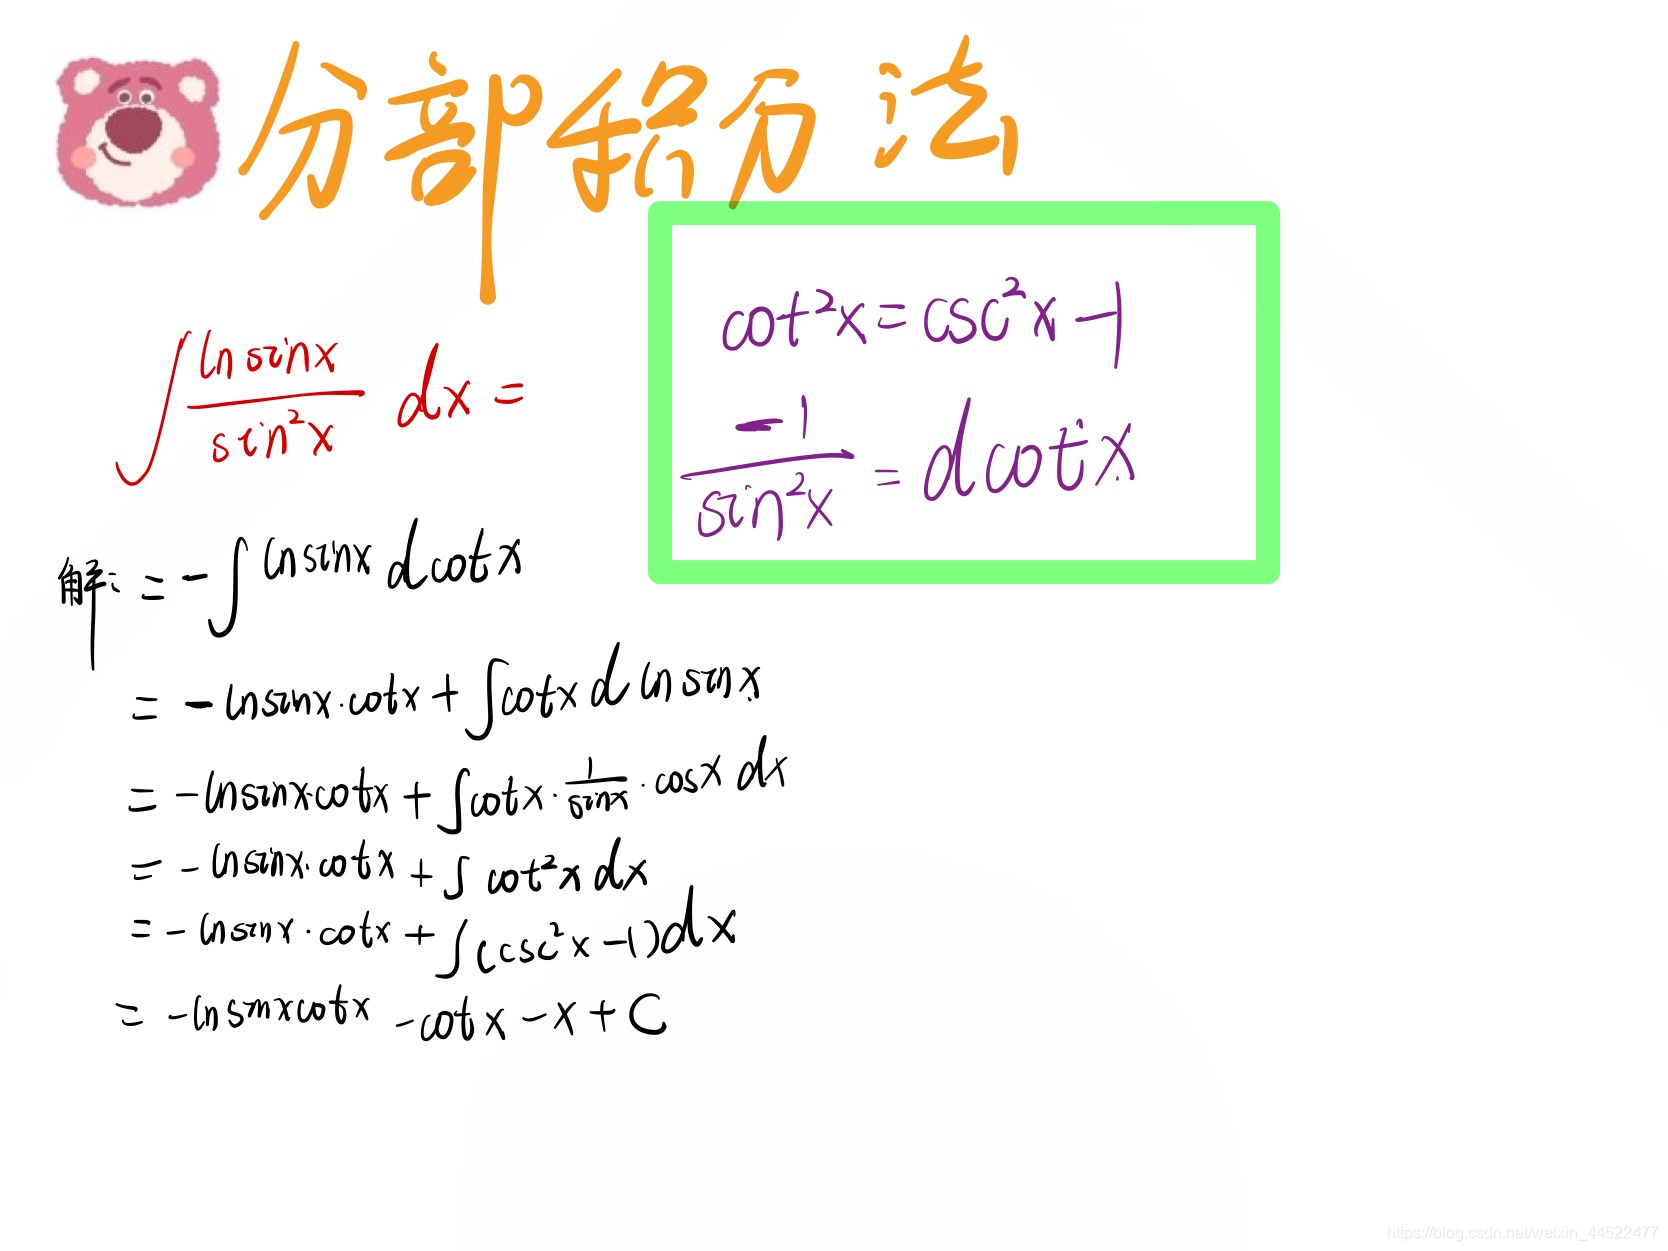 分部积分法
cot²x = csc²x - 1
-1/sin²x = d cot x
∫ ln sinx / sin²x dx =
解: = -∫ ln sinx d cot x
= - ln sinx · cotx + ∫ cotx d ln sinx
= - ln sinx · cotx + ∫ cotx · 1/sinx · cosx dx
= - ln sinx · cotx + ∫ cot²x dx
= - ln sinx · cotx + ∫ (csc²x - 1) dx
= - ln sinx cotx - cotx - x + C
https://blog.csdn.net/weixin_44522477